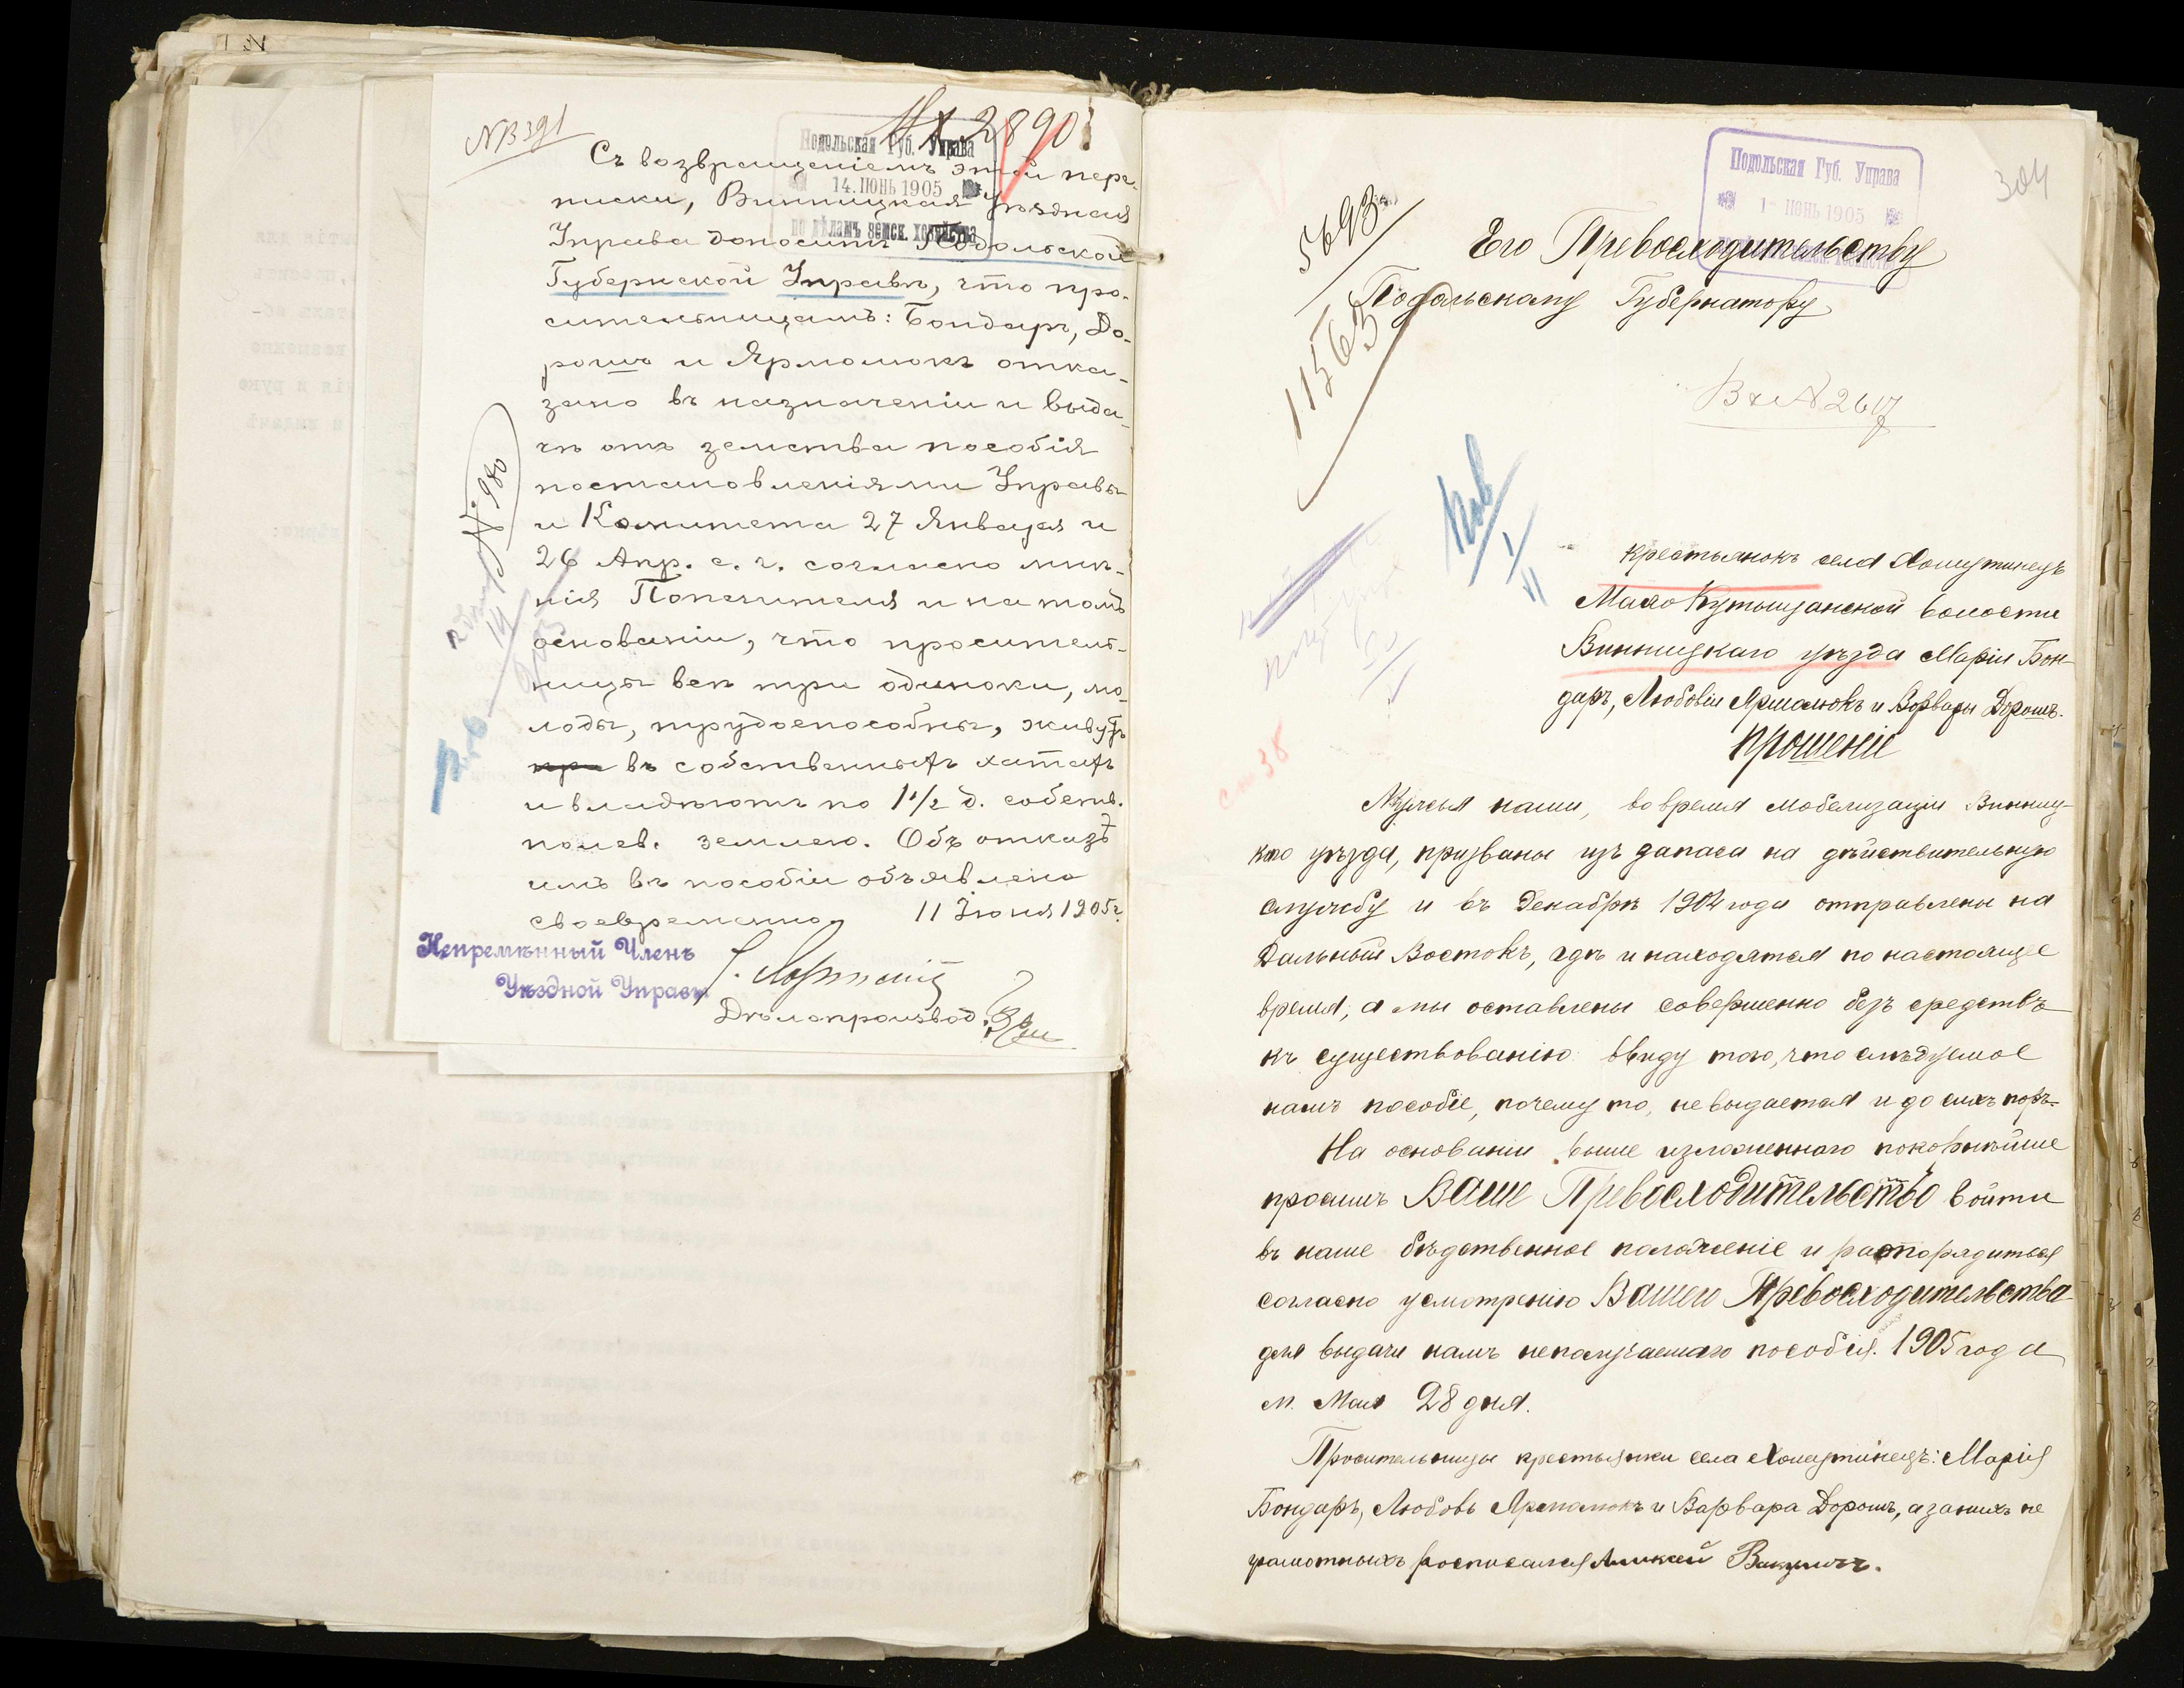 № 391
№ 2890
Подольская Губ. Управа
14. ІЮНЬ 1905
по дѣламъ земск. хозяйства
Съ возвращеніемъ этой пере-
писки, Винницкая Уѣздная
Управа доноситъ Подольской
Губернской Управѣ, что про-
сительницамъ: Бондарь, До-
рошъ и Ярмолюкъ отка-
зано въ назначеніи и выда-
чѣ отъ земства пособія
постановленіями Управы
и Комитета 27 Января и
26 Апр. с. г. согласно мнѣ-
нія Попечителя и на томъ
основаніи, что проситель-
ницы всѣ три одиноки, мо-
лоды, трудоспособны, живутъ
при въ собственныхъ хатахъ
и владѣютъ по 1 1/2 д. собств.
полев. землею. Объ отказѣ
имъ въ пособіи объявлено
своевременно. 11 Іюня 1905 г.
Непремѣнный Членъ
Уѣздной Управы
Дѣлопроизвод.
№ 980
304
Подольская Губ. Управа
1 - ІЮНЬ 1905
5693
11563
Его Превосходительству
Подольскому Губернатору
Вх № 2617
крестьянокъ села Хомутинецъ
Мало Кутыщанской волости
Винницкаго уѣзда Маріи Бон-
дарь, Любовіи Ярмолюкъ и Варвары Дорошъ.
Прошеніе
Ст 38
Мужья наши, во время мобелизаціи Винниц-
каго уѣзда, призваны изъ запаса на дѣйствительную
службу и въ Декабрѣ 1904 года отправлены на
Дальный Востокъ, гдѣ и находятся по настоящее
время, а мы оставлены совершенно безъ средствъ
къ существованію ввиду того, что слѣдуемое
намъ пособіе, почему то, не выдается и до сихъ поръ.
На основаніи выше изложеннаго покорнѣйше
просимъ Ваше Превосходительство войти
въ наше бѣдственное положеніе и распорядиться
согласно усмотрѣнію Вашего Превосходительства
для выдачи намъ неполучаемаго пособія. 1905 года
м. Мая 28 дня.
Просительницы крестьянки села Хомутинецъ: Марія
Бондарь, Любовь Ярмолюкъ и Варвара Дорошъ, а за нихъ не
грамотныхъ росписался